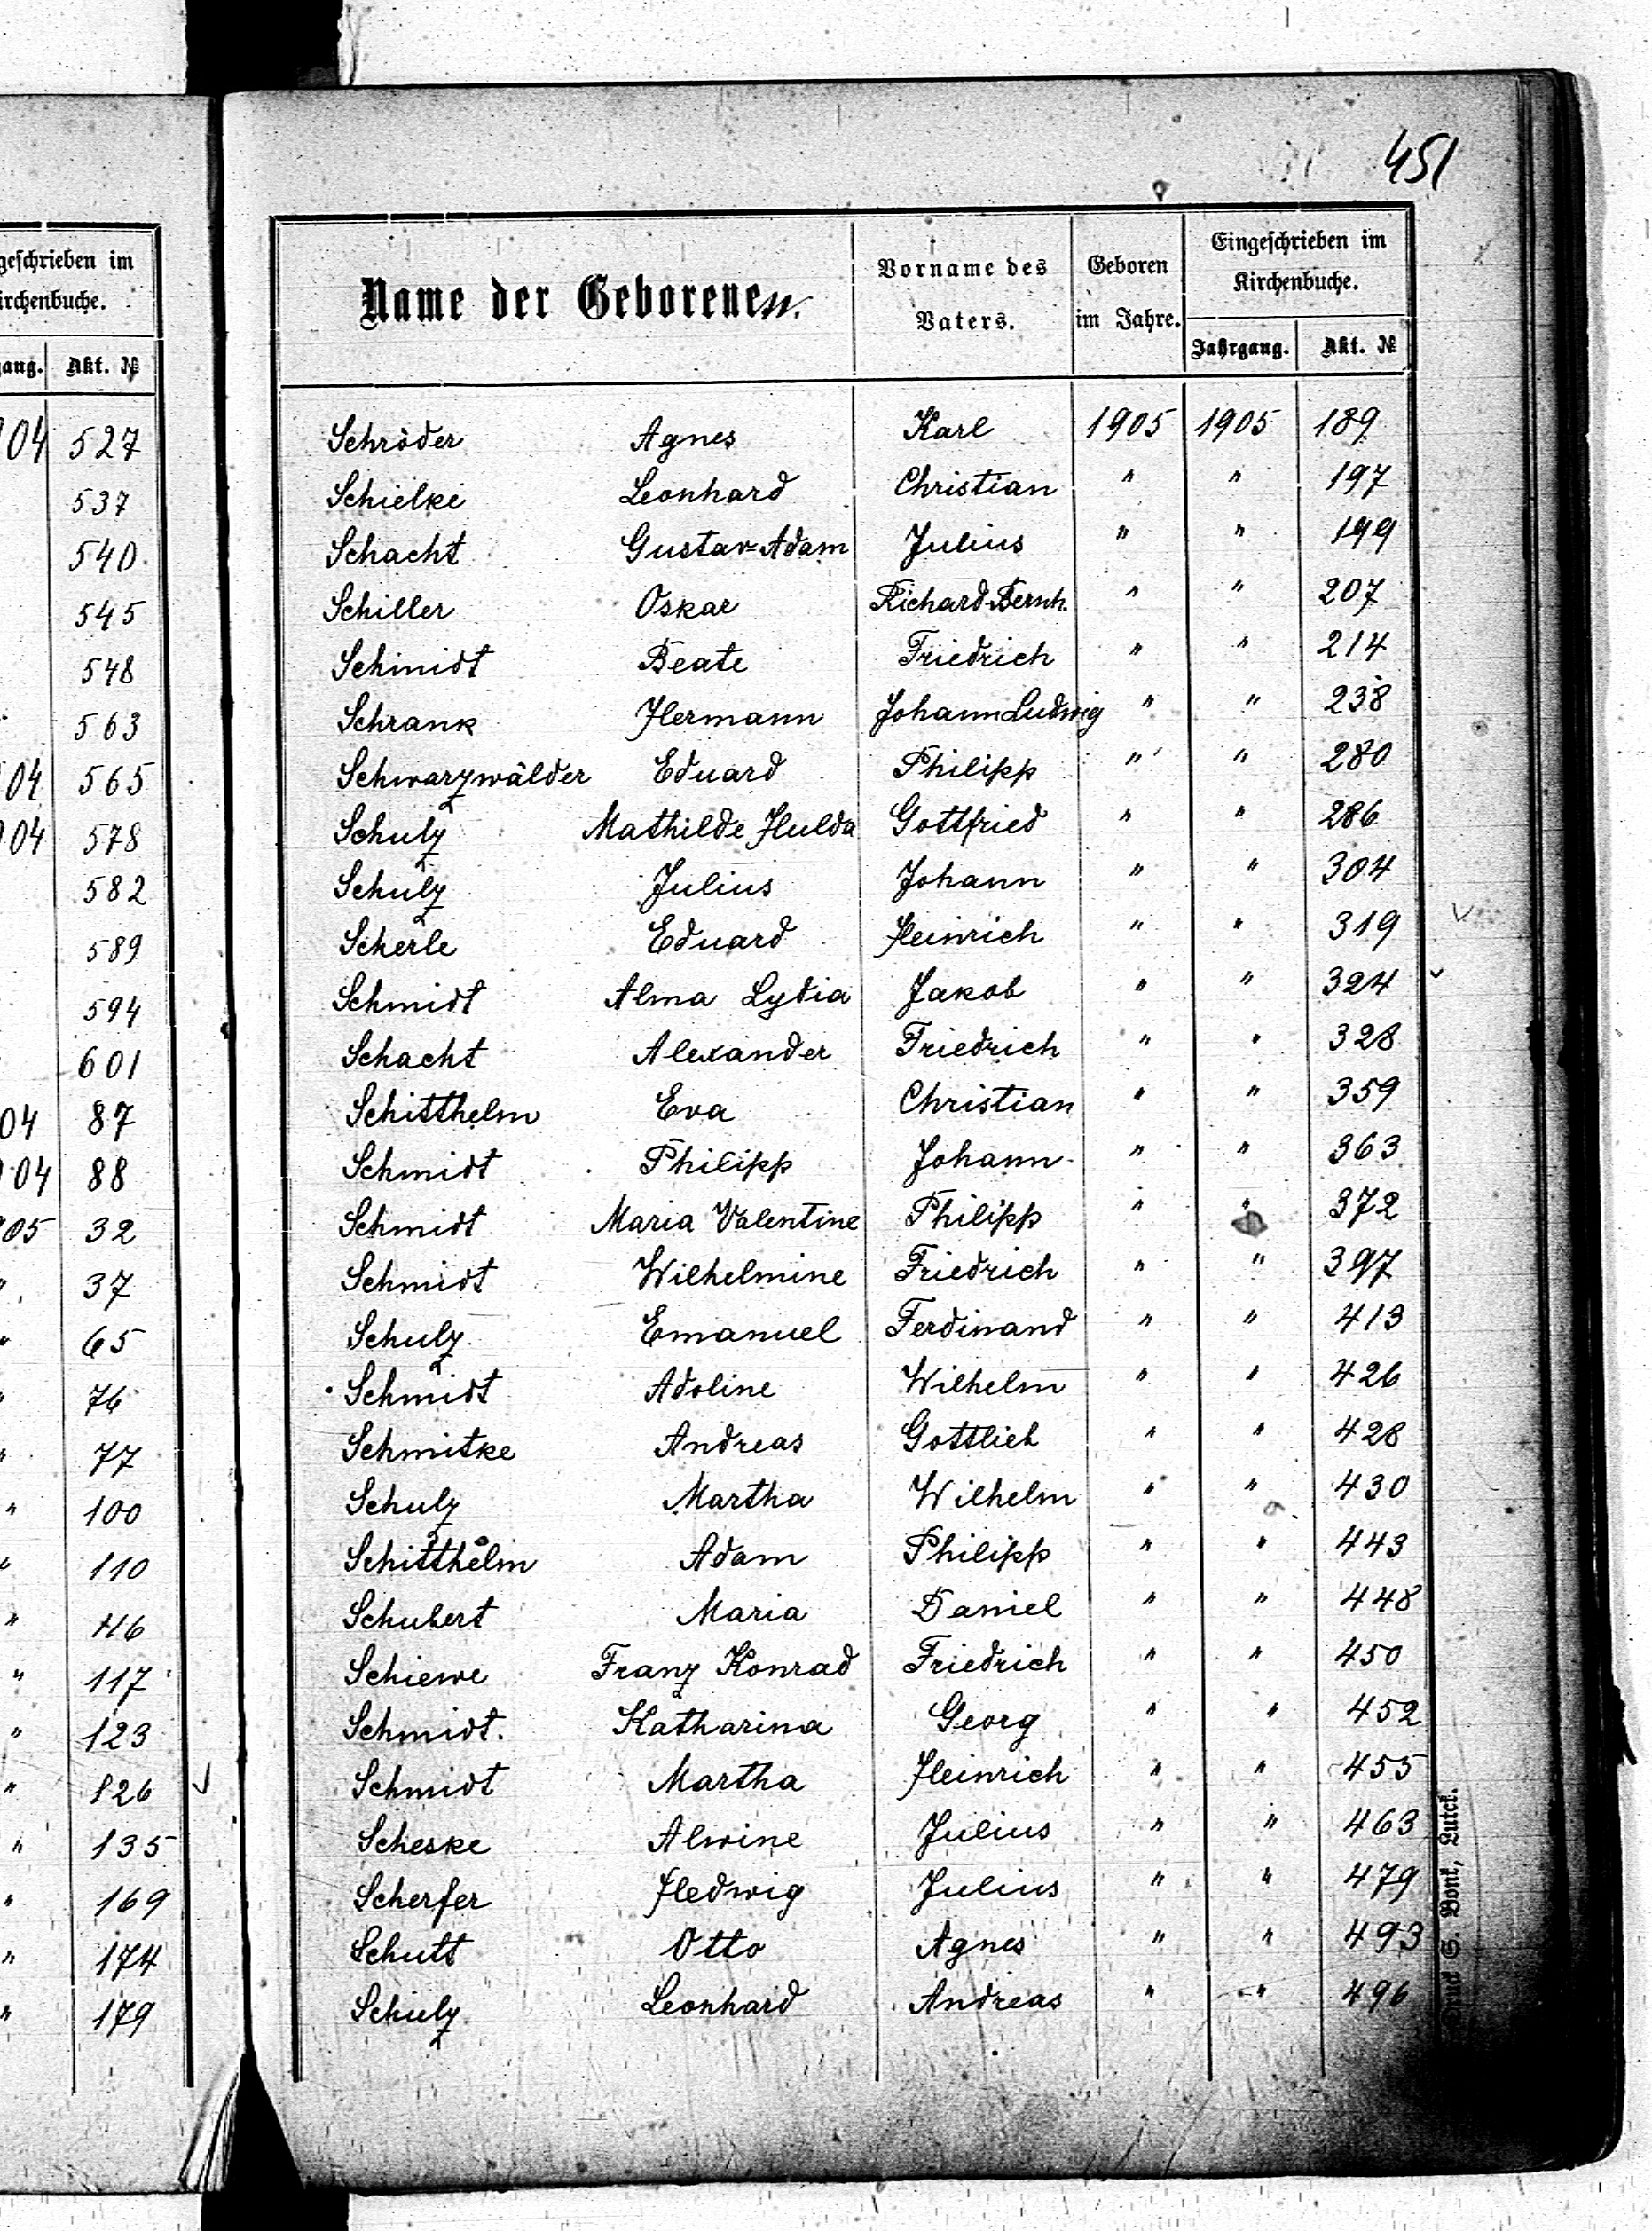 451
geschrieben im
irchenbuche.
gang. Akt. №
04 527
537
540.
545
548
563
04 565
04 578
582
589
594
601
04 87
04 88
05 32
" 37
" 65
" 76
" 77
" 100
" 110
" 116
" 117
" 123
" 126 ✓
" 135
" 169
" 174
" 179
Name der Geborenen. Vorname des Vaters. Geboren im Jahre. Eingeschrieben im Kirchenbuche.
Jahrgang. Akt. №
Schröder Agnes Karl 1905 1905 189
Schielke Leonhard Christian " " 197
Schacht Gustav-Adam Julius " " 199
Schiller Oskar Richard-Bernh. " " 207
Schmidt Beate Friedrich " " 214
Schrank Hermann Johann Ludwig " " 238
Schwarzwälder Eduard Philipp " " 280
Schulz Mathilde Hulda Gottfried " " 286
Schulz Julius Johann " " 304
Scherle Eduard Heinrich " " 319
Schmidt Alma Lydia Jakob " " 324
Schacht Alexander Friedrich " " 328
Schitthelm Eva Christian " " 359
Schmidt Philipp Johann " " 363
Schmidt Maria Valentine Philipp " " 372
Schmidt Wilhelmine Friedrich " " 397
Schulz Emanuel Ferdinand " " 413
Schmidt Adoline Wilhelm " " 426
Schmitke Andreas Gottlieb " " 428
Schulz Martha Wilhelm " " 430
Schitthelm Adam Philipp " " 443
Schubert Maria Daniel " " 448
Schiewe Franz Konrad Friedrich " " 450
Schmidt. Katharina Georg " " 452
Schmidt Martha Heinrich " " 455
Scheske Alwine Julius " " 463
Scherfer Hedwig Julius " " 479
Schutt Otto Agnes " " 493
Schulz Leonhard Andreas " " 496
Druck S. Bonk, Luck.